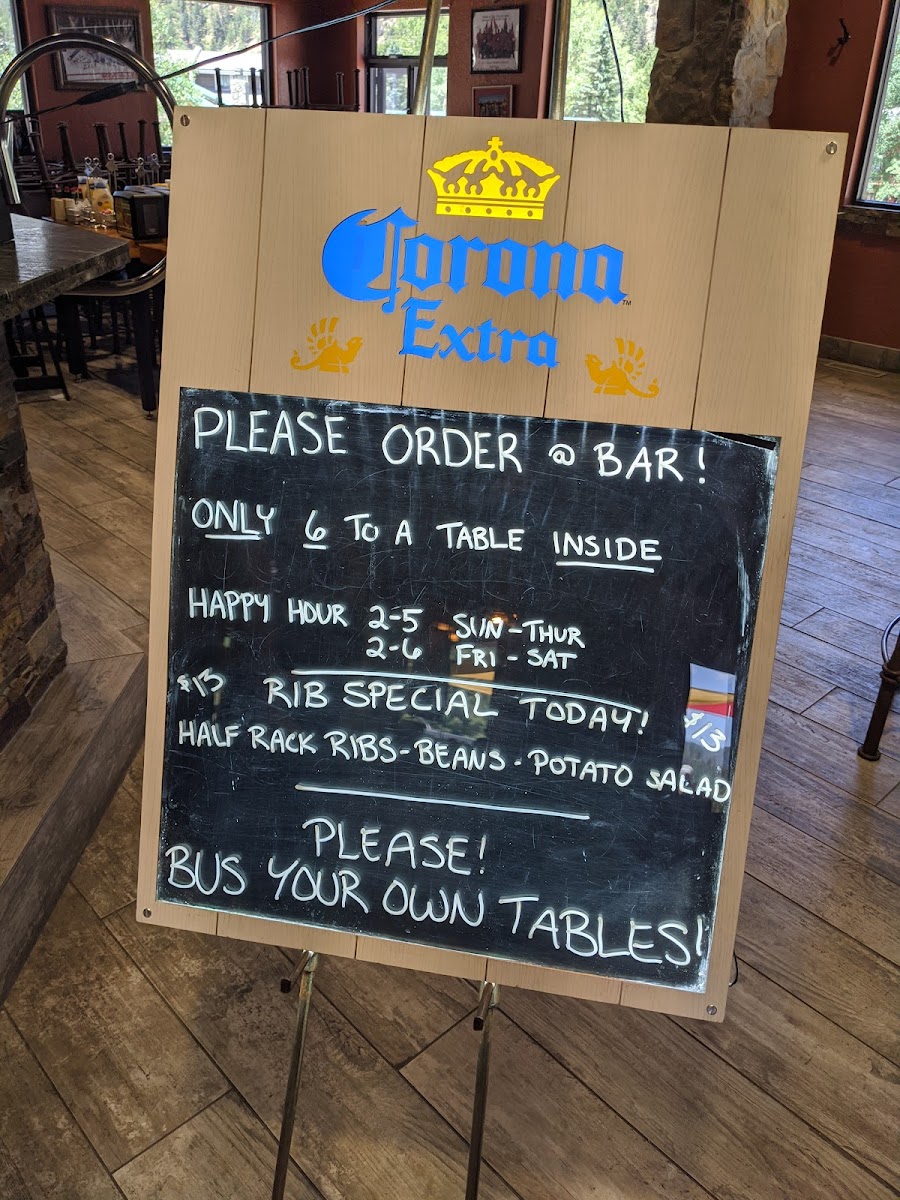 Corona
Extra
TM
PLEASE ORDER @ BAR!
ONLY 6 TO A TABLE INSIDE
HAPPY HOUR 2-5 SUN-THUR
2-6 FRI-SAT
$13 RIB SPECIAL TODAY! $13
HALF RACK RIBS-BEANS-POTATO SALAD
PLEASE!
BUS YOUR OWN TABLES!